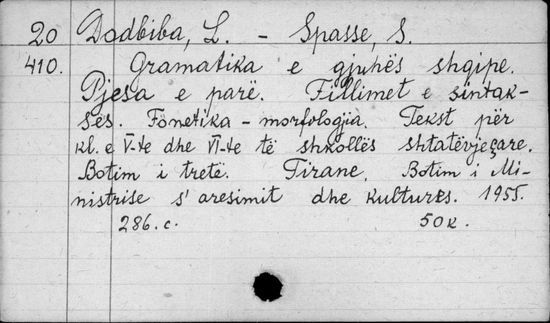 20 Dodbiba, L. - Spasse, S.
410. Gramatika e gjuhës shqipe.
Pjesa e parë. Fillimet e sintak-
ses. Fonetika - morfologjia. Tekst për
kl. e V-te dhe VI-te të shkollës shtatëvjeçare.
Botim i tretë. Tirane, Botim i Mi-
nistrise s' aresimit dhe kultures. 1955.
286. c. 50 к.